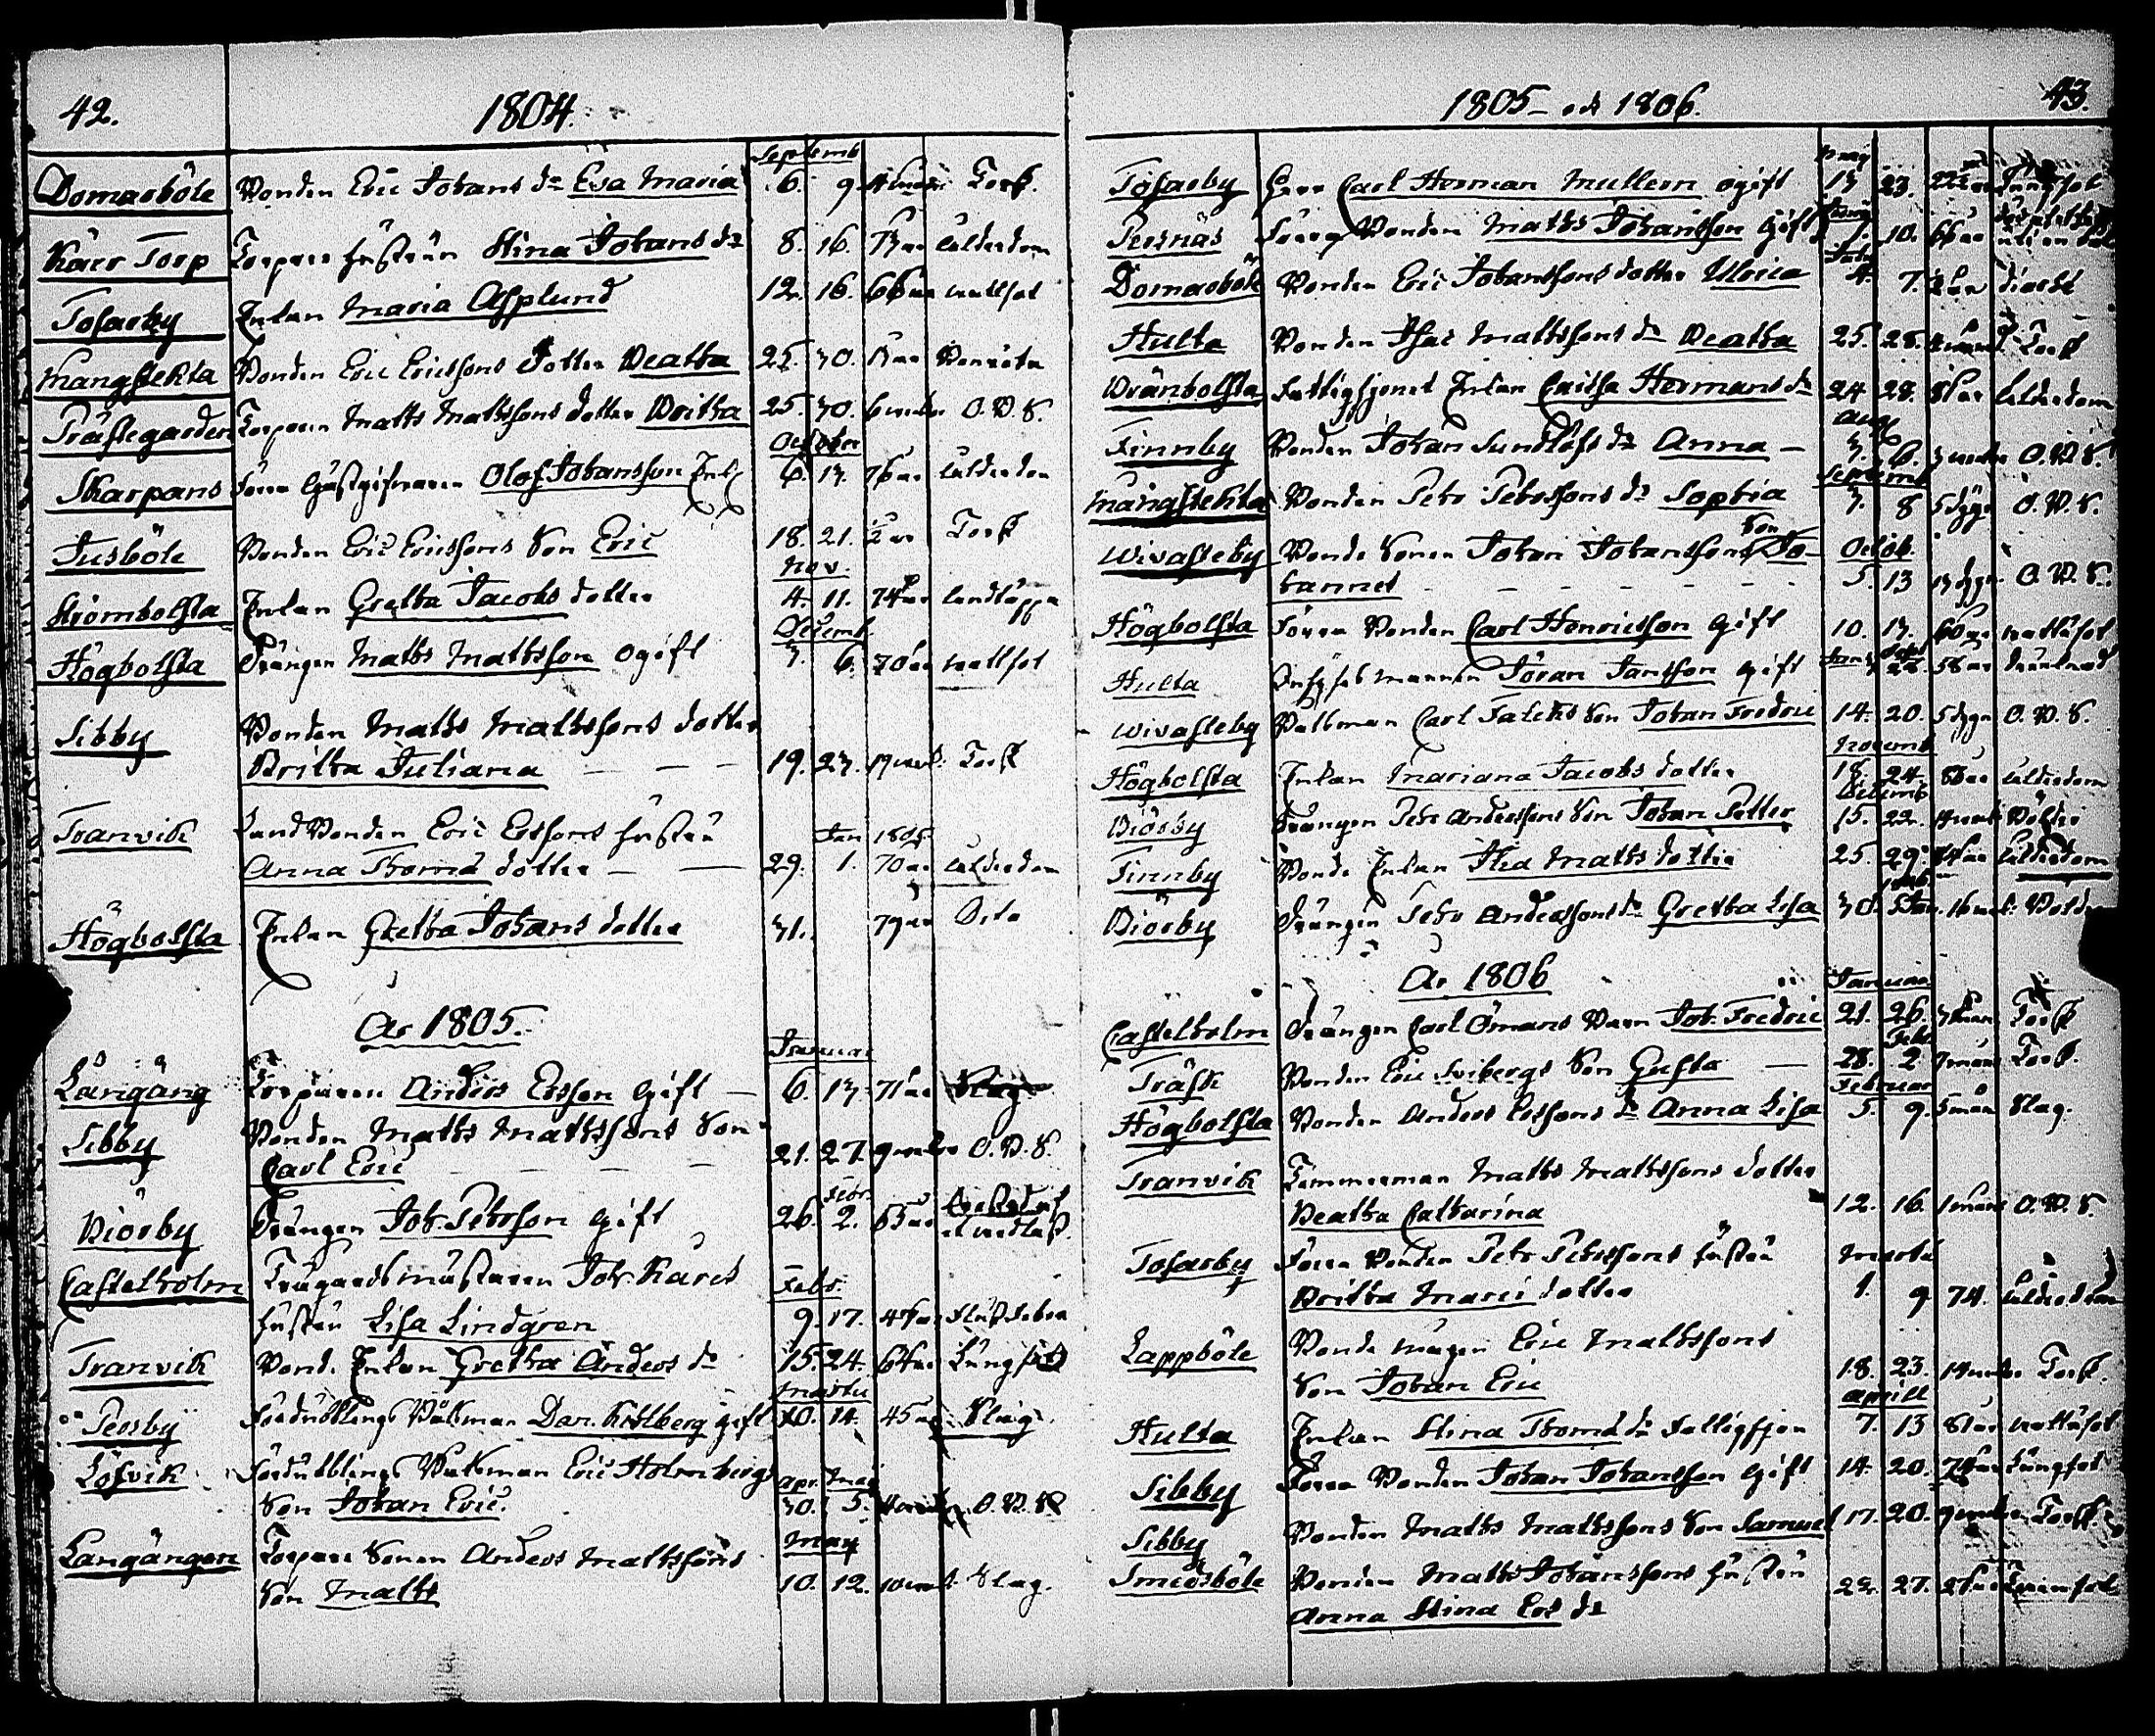 42.
1804.
Septemb
Domarböle Bonden Eric Johans dr Eva Maria 6. 9. Torsk.
Kärr Torp Torpare hustrun Stina Johans dr 8. 16. 73 år ålderdom
Tosarby Enkan Maria Asplund 12. 16. 66 år wattsot
Mangstekta Bonden Eric Ericssons dotter Beatha 25. 30. Benröta
Prästegården Torparen Matts Mattssons dotter Britha 25. 30. 6 weckor O.B.S.
October
Skarpans Förra Gästgifvaren Olof Johansson 6. 13. 76 år ålderdom
Jusböle Bonden Eric Ericssons Son Eric 18. 21. Torsk
Nov.
Strömbolsta Enkan Gretha Jacobs dotter 4. 11. 74 år andtäppa
Decemb.
Högbolsta Drängen Matts Mattsson ogift 3. 6. 70 år wattsot
Sibby Bonden Matts Mattssons dotter
Britha Juliana — — — 19. 23. Torsk
Tranvik Bonden Eric Ersons hustru
Jan 1805
Anna Thoms dotter — — 29. 1. 70 år ålderdom
Högbolsta Enkan Gretha Johans dotter 31. 79 år Dito
År 1805.
Januari
Långäng Torparen Anders Ersson gift 6. 13. 71 år Slag
Sibby Bonden Matts Mattssons Son
Carl Eric — — — 21. 27. 9 weckor O.B.S.
Febr.
Biörby Drängen Joh. Pehrsson gift 26. 2. 63 år
Castelholm Joh. Karis
Febr.
hustru Lisa Lindgren 9. 17. feber
Tranvik Bond. Enkan Gretha Anders dr 15. 24. 64 år Lungsot
Martii
Persby Fördubblings Båtsman Dan. Kihlberg gift 10. 14. 45 år Slag
Löfvik Fördubblings Båtsman Eric Holmbergs
apr. May
Son Johan Eric. 30. 5. O.B.S
May
Langängen Torpare Sonen Anders Mattssons
Son Matts 10. 12. Slag.
1805— och 1806.
43.
May
Tosarby Herr Carl Herman Mullern ogift 13 23. 22 år Lungsot
Persnäs Förra Bonden Matts Johansson gift 7. 10. 66 år
Domarböle Bonden Eric Johanssons dotter Ulrica 4. 7. diarré
Hulta Bonden Isac Mattssons dr Beatha 25. 28. Torsk
Bränbolsta Fattighjonet Enkan Caisa Hermans dr 24 28. ålderdom
aug
Finnby Bonden Johan Sundlöfs dr Anna — 3. 6. O.B.S.
Septemb
Mångstekta Bonden Pehr Pehrssons dr Sophia 3. 8 5 dygn O.B.S.
Wivasteby Bonde Sonen Johan Johanssons Son Jo-
Octob.
hannes — — — — 5. 13 13 dygn O.B.S.
Högbolsta Förra Bonden Carl Henricsson gift 10. 13. 60 år wattusot
Hulta Jöran Jansson gift 28. 58 år drunknad
Wivasteby Båtsman Carl Falcks Son Johan Fredric 14. 20. 5 dygn O.B.S.
Novemb
Högbolsta Enkan Mariana Jacobs dotter 18. 24. ålderdom
Decemb
Biörby Drängen Pehr Anderssons Son Johan Petter 15. 22.
Finnby Bonde Enkan Stia Matts dotter 25. 29. ålderdom
Biörby Drängen Pehr Anderssons dr Gretha Lisa 30.
År 1806
Januari
Castelholm Drängen Carl Ömans Barn Joh. Fredric 21. 26. Torsk
Febr.
Träsk Bonden Eric Svibergs Son Gusta — 28. 2. 7 mån Torsk.
Februari
Högbolsta Bonden Anders Erssons dr Anna Lisa 5. 9. 5 mån Slag.
Tranvik Timmerman Matts Mattssons dotter
Beatha Catharina 12. 16. O.B.S.
Tosarby Förra Bonden Pehr Pehrssons hustru
Martii
Britha Maris dotter 1. 9. 74. ålderdom
Lappböle Bonde mågen Eric Mattssons
Son Johan Eric 18. 23. Torsk.
Aprill
Hulta Enkan Stina Thoms dr fattighjon 7. 13 81 år wattusot
Sibby Förra Bonden Johan Johansson gift 14. 20. 74 år Lungsot
Sibby Bonden Matts Mattssons Son Samuel 17. 20. Torsk.
Smedsböle Bonden Matts Johanssons hustru
Anna Stina Ers dr 22. 27.